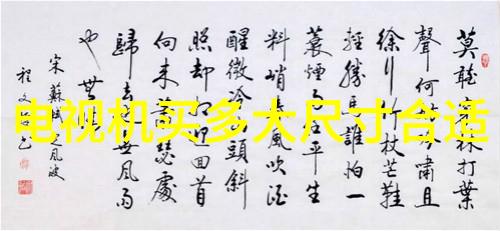 电视机买多大尺寸合适
莫聽林打葉
聲何嘯且
徐行竹杖芒鞋
輕勝馬誰怕一
蓑煙任平生
料峭風吹酒
醒微冷頭斜
照却迎回首
向來蕭瑟處
歸去無風雨
也無
宋蘇軾風波
程文